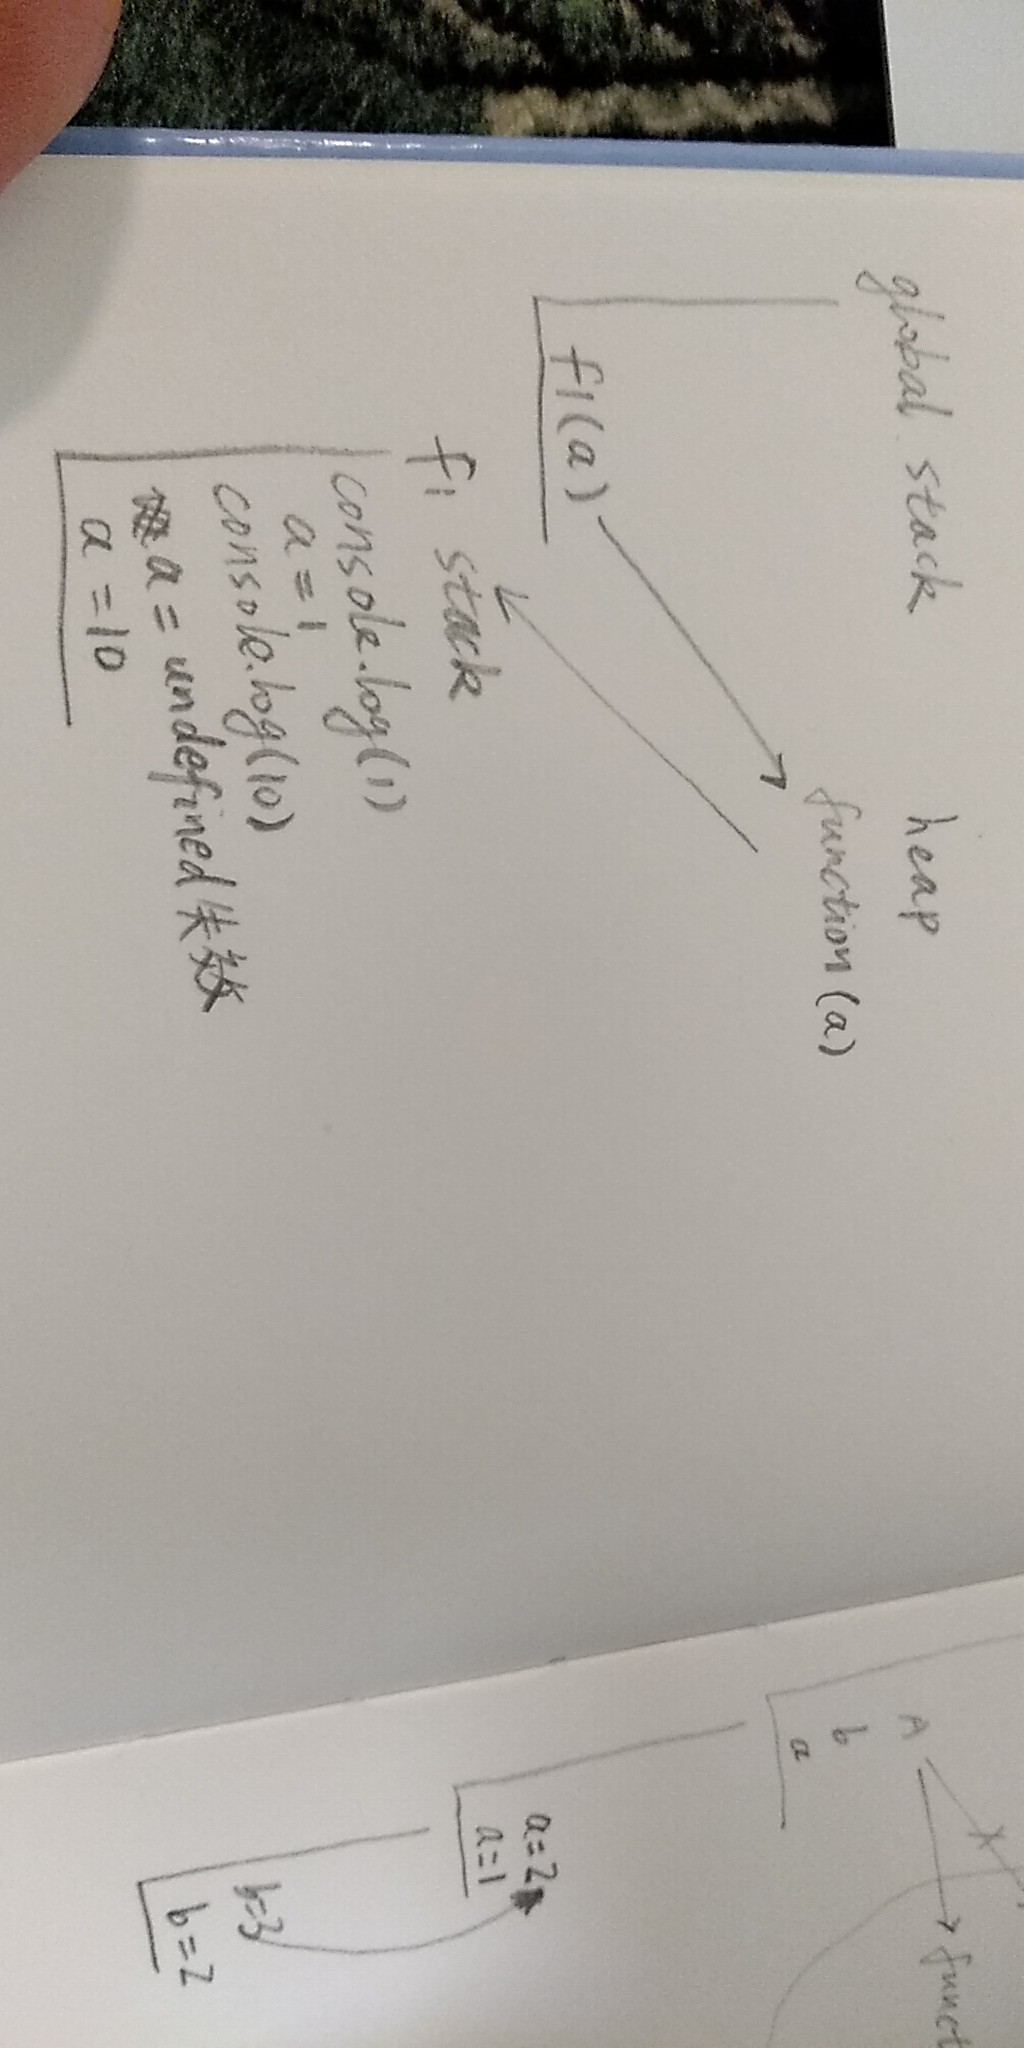 global stack
heap
f1(a)
function(a)
f1 stack
console.log(1)
a=1
console.log(10)
a=undefined失效
a=10
A
funct
b
a
a=2
a=1
b=3
b=2